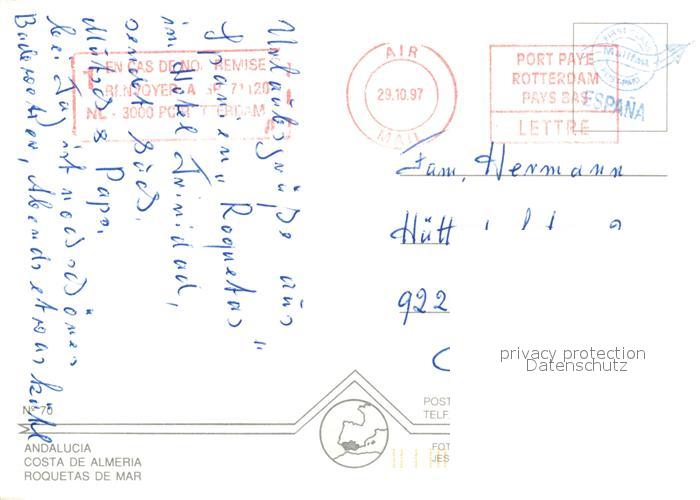 Urlaubsgrüße aus
Spanien "Roquetas"
im Hotel Trinidad,
sendet Euch
Mutti & Papa.
bei Tag ist noch schönes
Badewetter, Abends etwas kühl
EN CAS DE NON REMISE
RENVOYER A
NL - 3000 ROTTERDAM
AIR
29.10.97
MAIL
PORT PAYE
ROTTERDAM
PAYS BAS
LETTRE
ESPAÑA
Fam. Hermann
Hütt
922
privacy protection
Datenschutz
Nº 70
ANDALUCIA
COSTA DE ALMERIA
ROQUETAS DE MAR
POST
TELF.
FOT
JES